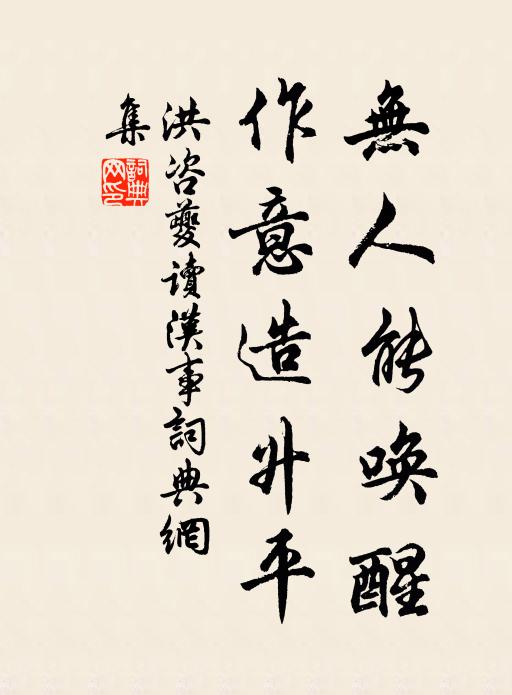 無人能喚醒
作意造升平
洪咨夔讀漢事詞典網
集
詞典
网印